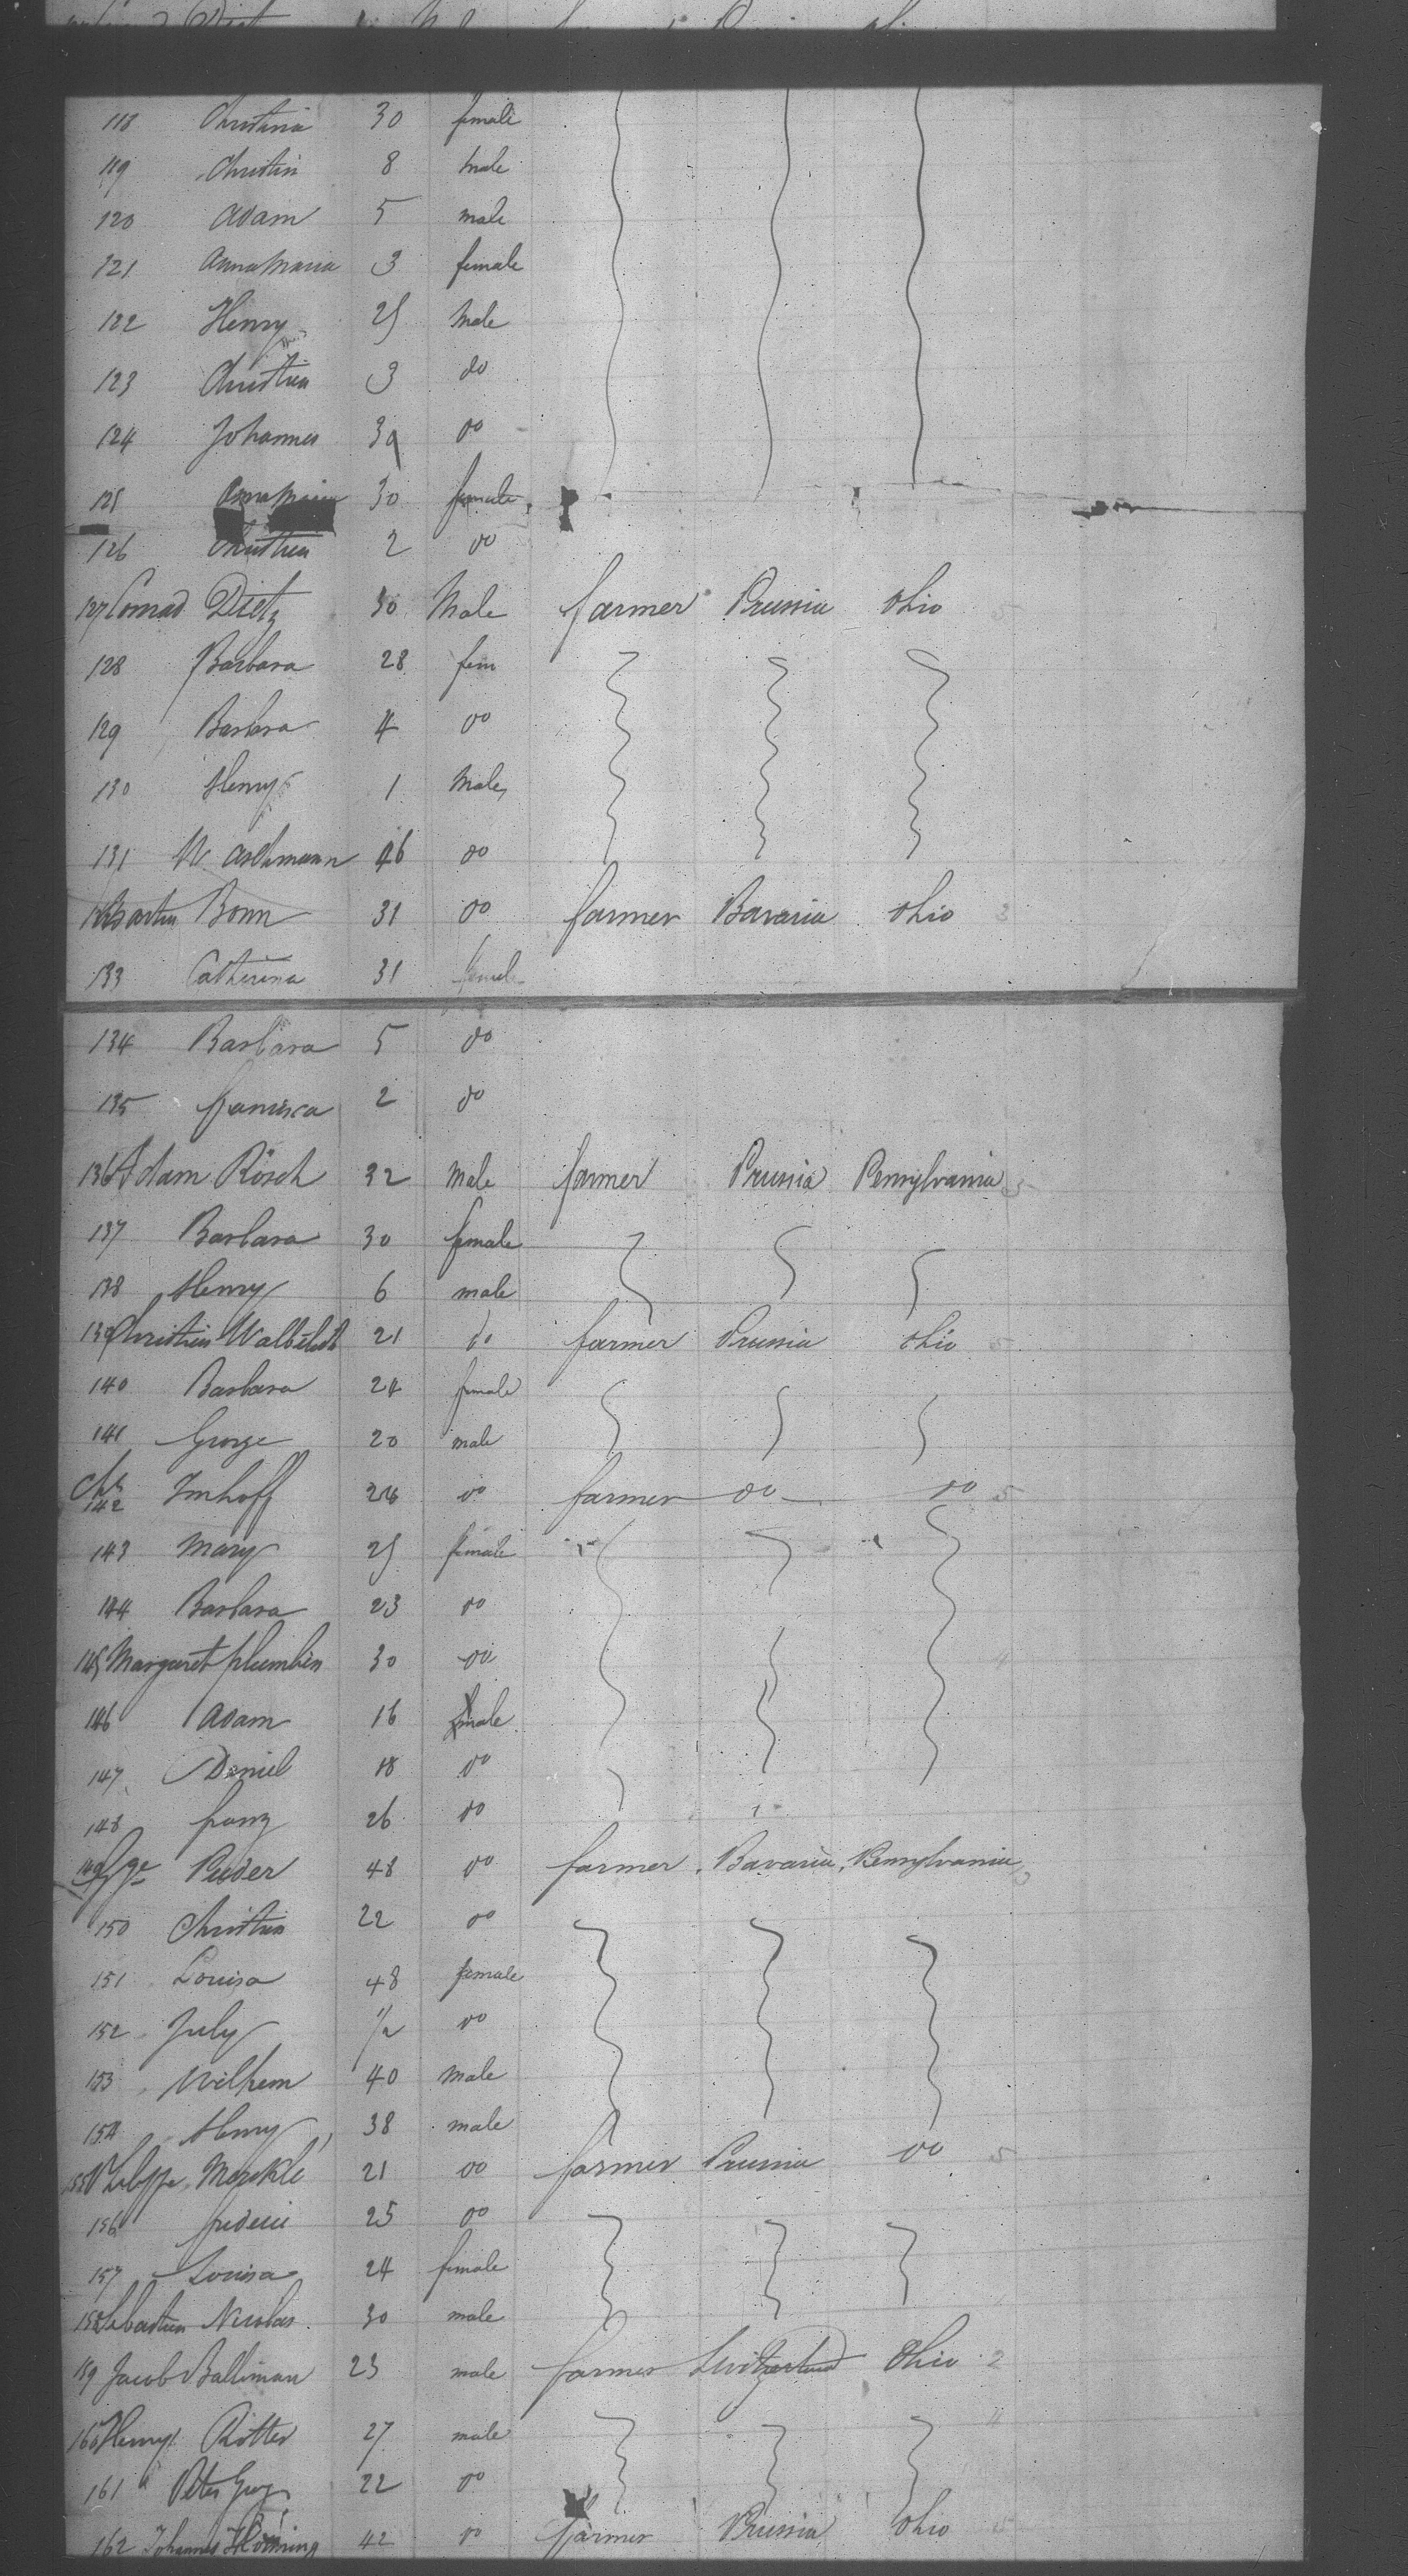 118 Christina 30 female
119 Christin 8 male
120 Adam 5 male
121 Anna Maria 3 female
122 Henry 25 Male
123 Christian 3 do
124 Johannes 39 do
125 Anna Maria 30 female
126 Christian 2 do
127 Conrad Dietz 30 Male farmer Prussia Ohio 5
128 Barbara 28 fem
129 Barbara 4 do
130 Henry 1 Male
131 W. Aschmann 46 do
Bonn 31 do farmer Bavaria Ohio 3
133 Catherina 31 femal
134 Barbara 5 do
135 2 do
136 Adam Rösch 32 Male farmer Prussia Pennsylvania 5
137 Barbara 30 female
138 Henry 6 male
139 Christian 21 do farmer Prussia Ohio 5
140 Barbara 24 female
141 George 20 male
142 Chr Imhoff 24 do farmer do do 5
143 Mary 25 female
144 Barbara 23 do
145 Margaret 30 do
146 Adam 16 male
147 Daniel 18 do
148 franz 26 do
149 Gge Puder 48 do farmer Bavaria Pennsylvania 3
150 Christian 22 do
151 Louisa 48 female
152 July 1/2 do
153 Wilhem 40 male
154 Henry 38 male
155 Merkle 21 do farmer Prussia do 5
156 frederic 25 do
157 Louisa 24 female
158 Sebastian Nicolas 30 male
159 Jacob Balliman 23 male farmer Switzerland Ohio 2
160 Henry Ritter 27 male
161 Peter 22 do
162 Johannes 42 do farmer Prussia Ohio